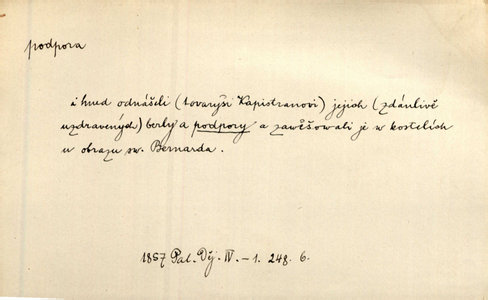 podpora
i hned odnášeli (tovaryši Kapistranovi) jejich (zdánlivě
uzdravených) berly a podpory a zawěšowali je w kostelích
u obrazu sw. Bernarda.
1857 Pal. Děj. IV. – 1. 248. 6.